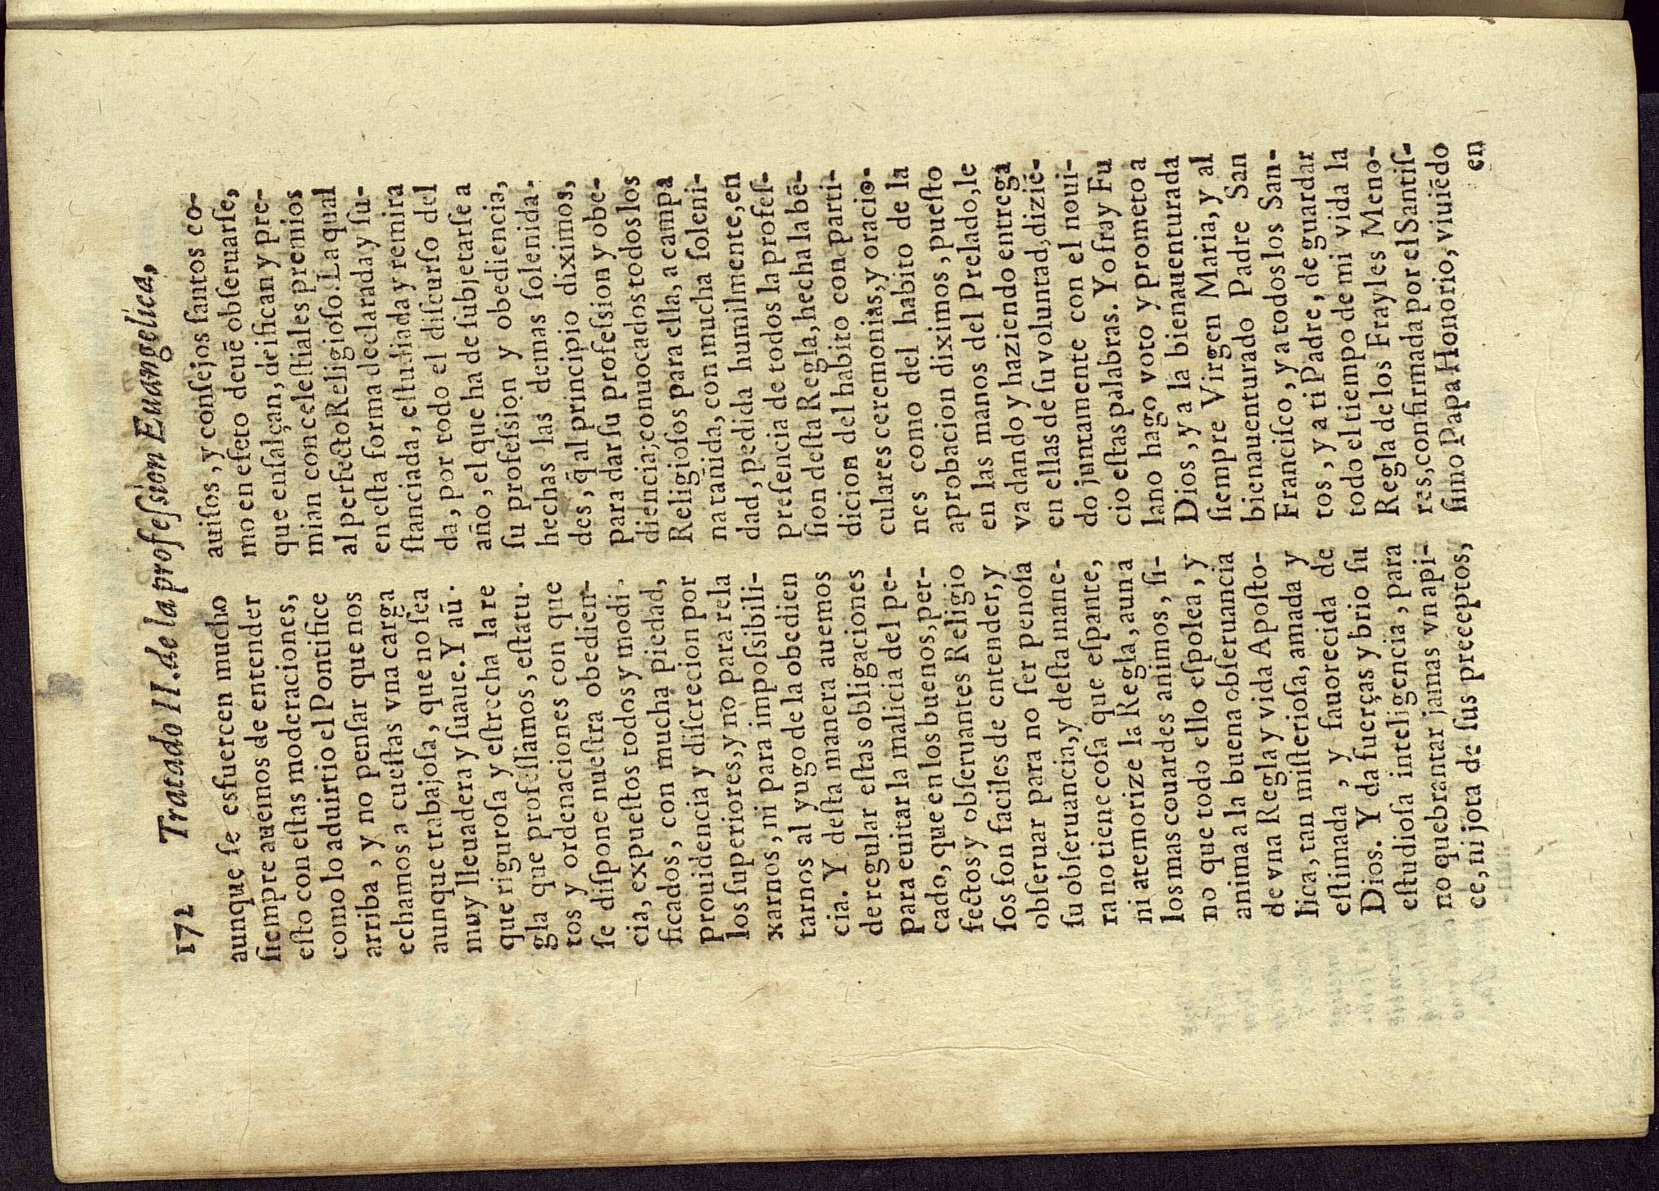 172 Tratado II. de la profeſsion Euangelica,
aunque ſe esfuercen mucho
ſiempre auemos de entender
eſto con eſtas moderaciones,
como lo aduirtio el Pontifice
arriba, y no penſar que nos
echamos a cueſtas vna carga
aunque trabajoſa, que no ſea
muy lleuadera y ſuaue. Y aũ.
que riguroſa y eſtrecha la re
gla que profeſſamos, eſtatu.
tos y ordenaciones con que
ſe diſpone nueſtra obedien-
cia, expueſtos todos y modi.
ficados, con mucha piedad,
prouidencia y diſcrecion por
los ſuperiores, y no para rela
xarnos, ni para impoſsibili-
tarnos al yugo de la obedien
cia. Y deſta manera auemos
de regular eſtas obligaciones
para euitar la malicia del pe-
cado, que en los buenos, per-
fectos y obſeruantes Religio
ſos ſon faciles de entender, y
obſeruar para no ſer penoſa
ſu obſeruancia, y deſta mane-
ra no tiene coſa que eſpante,
ni atemorize la Regla, aun a
los mas couardes animos, ſi-
no que todo ello eſpolea, y
anima a la buena obſeruancia
de vna Regla y vida Apoſto-
lica, tan miſterioſa, amada y
eſtimada, y fauorecida de
Dios. Y da fuerças y brio ſu
eſtudioſa inteligencia, para
no quebrantar jamas vn api-
ce, ni jota de ſus preceptos,
auiſos, y conſejos ſantos co-
mo en efeto deuẽ obſeruarſe,
que enſalçan, deifican y pre-
mian con celeſtiales premios
al perfecto Religioſo. La qual
en eſta forma declarada y ſu-
ſtanciada, eſtudiada y remira
da, por todo el diſcurſo del
año, el que ha de ſubjetarſe a
ſu profeſsion y obediencia,
hechas las demas ſolenida-
des, q̃ al principio diximos,
para dar ſu profeſsion y obe-
diencia; conuocados todos los
Religioſos para ella, a campa
na tañida, con mucha ſoleni-
dad, pedida humilmente, en
preſencia de todos la profeſ-
ſion deſta Regla, hecha la bẽ-
dicion del habito con parti-
culares ceremonias, y oracio-
nes como del habito de la
aprobacion diximos, pueſto
en las manos del Prelado, le
va dando y haziendo entrega
en ellas de ſu voluntad, diziẽ-
do juntamente con el noui-
cio eſtas palabras. Yo fray Fu
lano hago voto y prometo a
Dios, y a la bienauenturada
ſiempre Virgen Maria, y al
bienauenturado Padre San
Franciſco, y a todos los San-
tos, y a ti Padre, de guardar
todo el tiempo de mi vida la
Regla de los Frayles Meno-
res, confirmada por el Santiſ-
ſimo Papa Honorio, viuẽdo
en